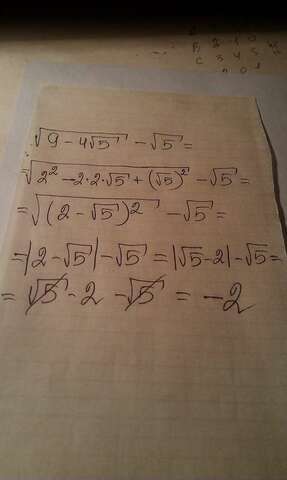 √(9 - 4√5) - √5 =
= √(2² - 2·2·√5 + (√5)²) - √5 =
= √((2 - √5)²) - √5 =
= |2 - √5| - √5 = |√5 - 2| - √5 =
= √5 - 2 - √5 = -2